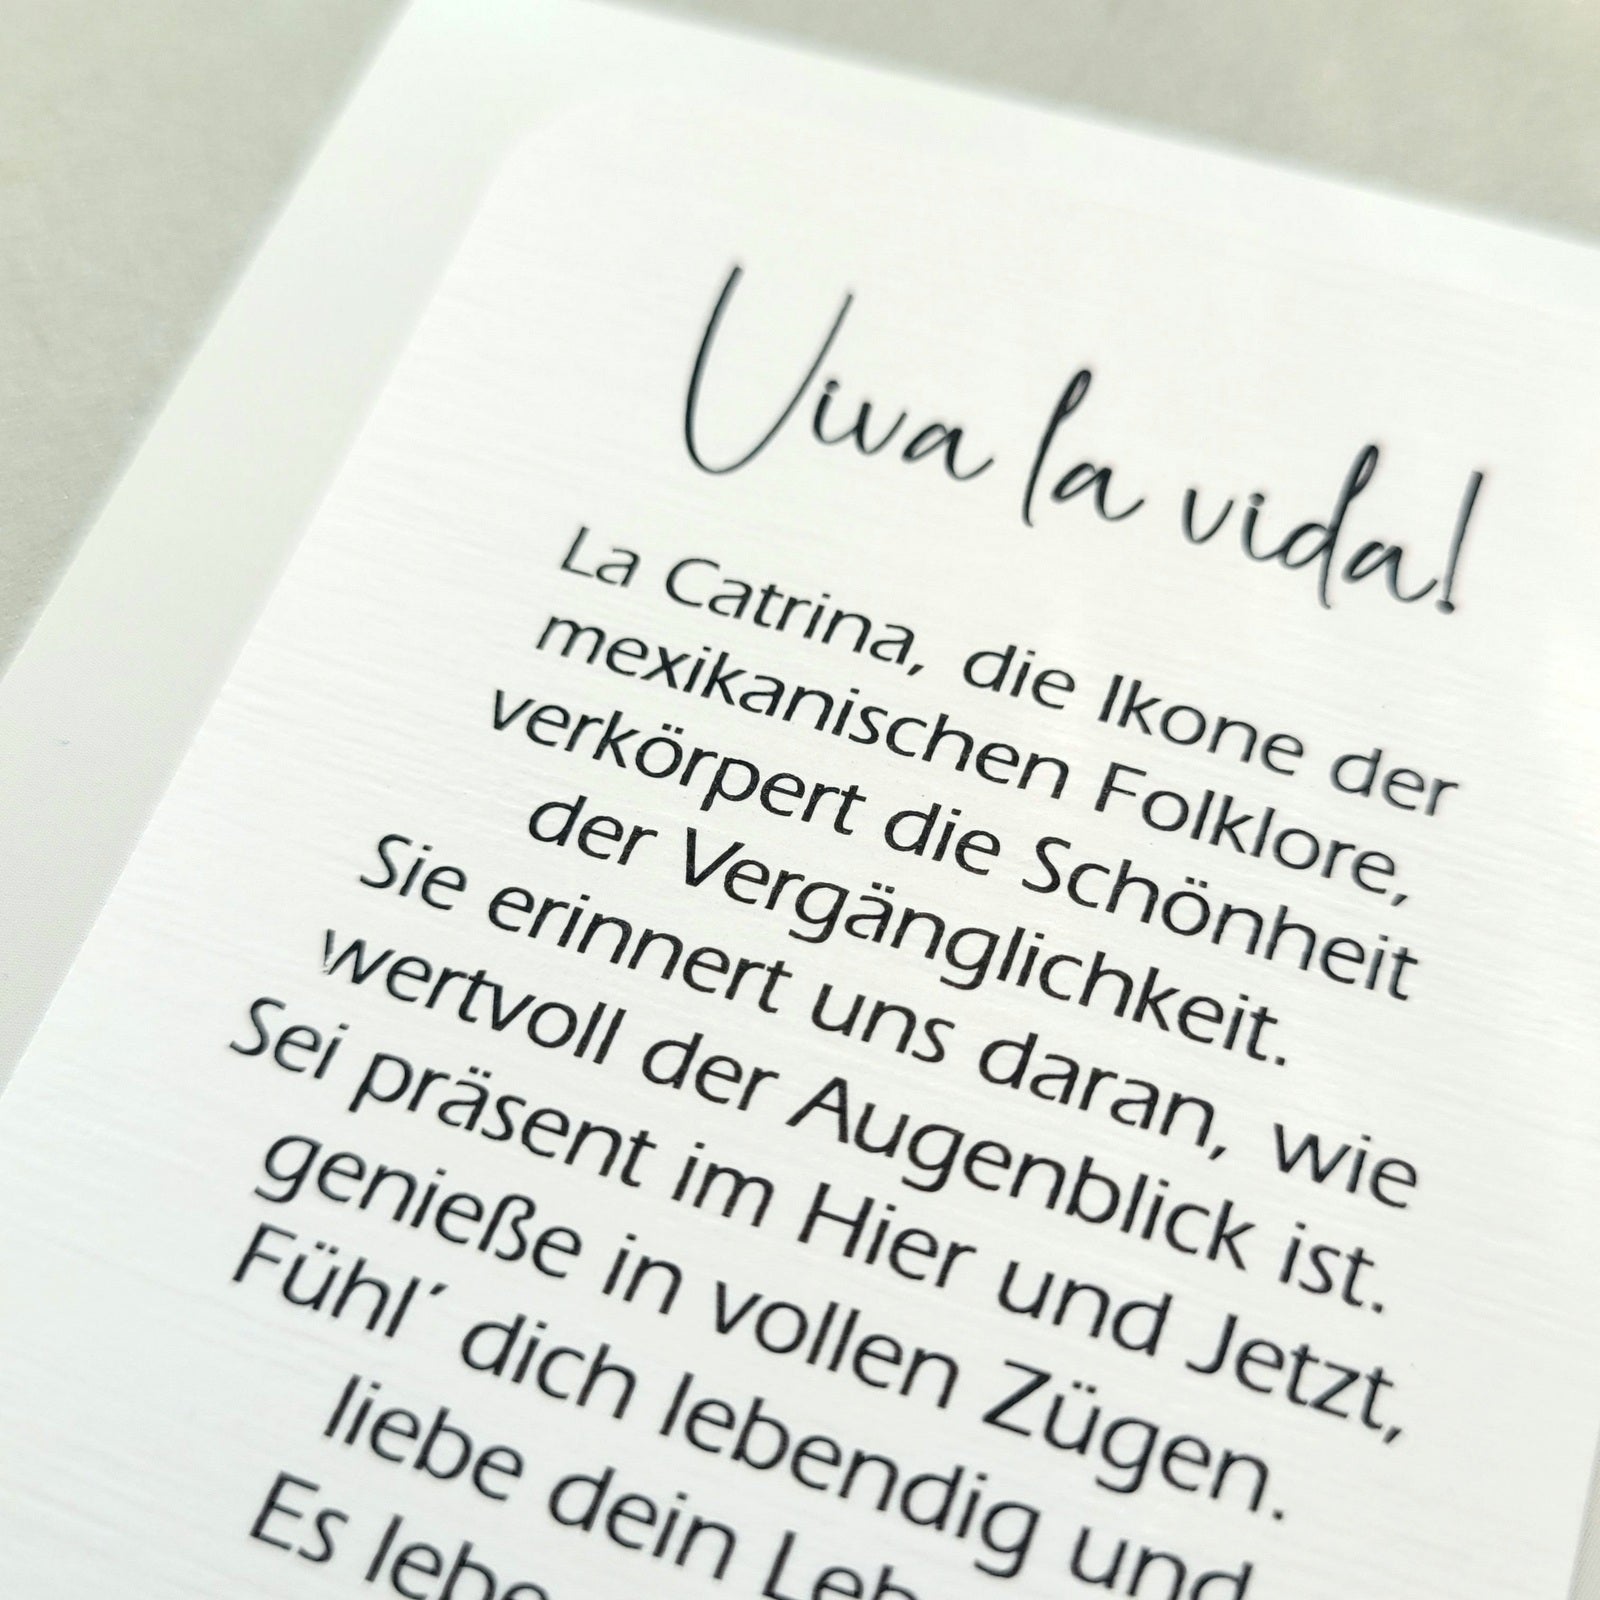 Viva la vida!
La Catrina, die Ikone der
mexikanischen Folklore,
verkörpert die Schönheit
der Vergänglichkeit.
Sie erinnert uns daran, wie
wertvoll der Augenblick ist.
Sei präsent im Hier und Jetzt,
genieße in vollen Zügen.
Fühl´ dich lebendig und
liebe dein
Es